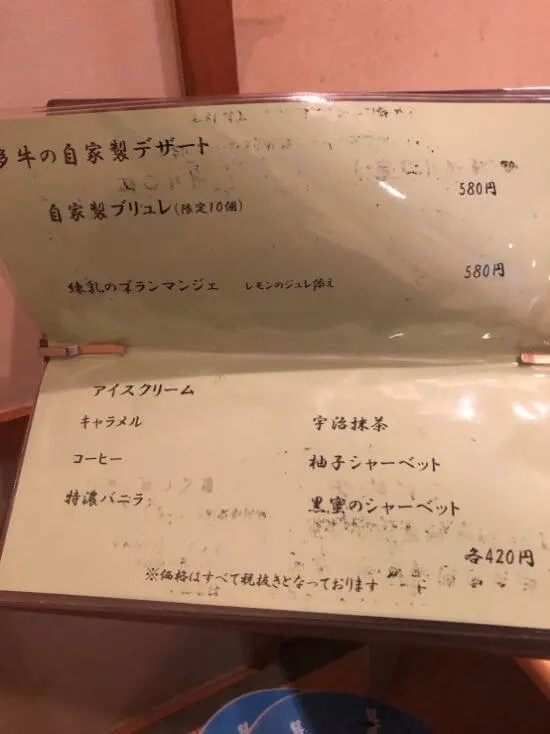 多牛の自家製デザート
自家製ブリュレ(限定10個) 580円
練乳のブランマンジェ レモンのジュレ添え 580円
アイスクリーム
キャラメル 宇治抹茶
コーヒー 柚子シャーベット
特濃バニラ 黒蜜のシャーベット
各420円
※価格はすべて税抜きとなっております